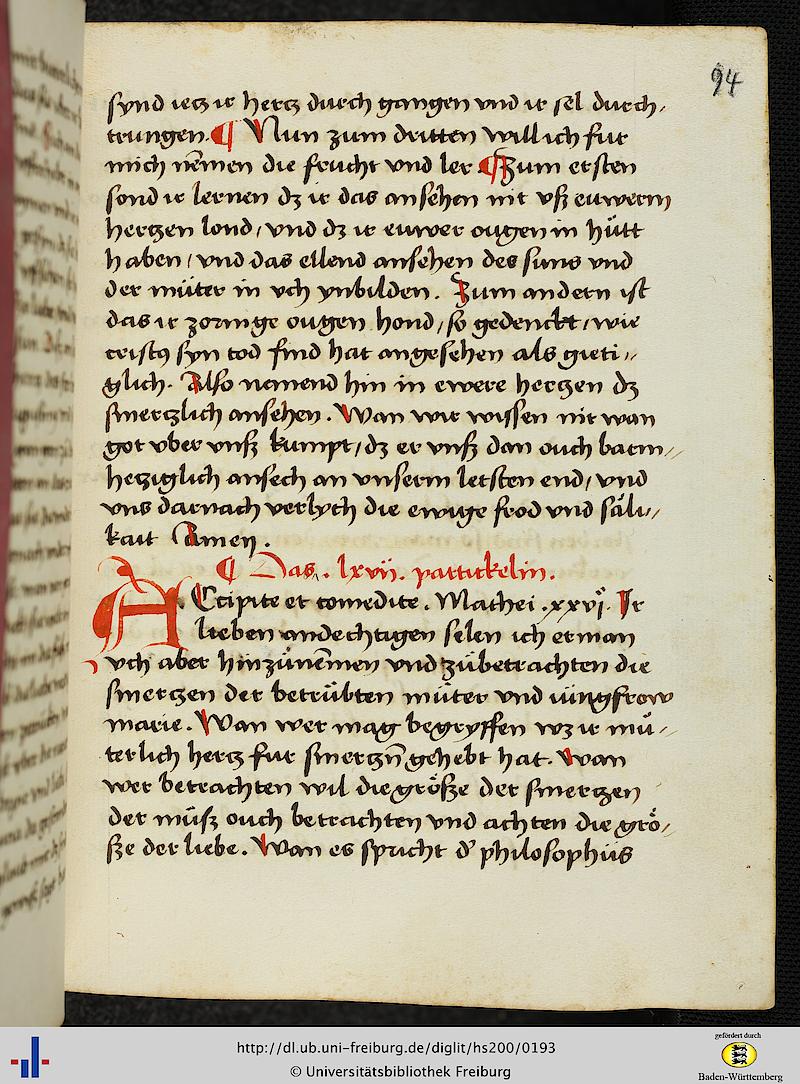 94
synd iecz ir hercz durch gangen vnd ir sel durch,
trungen. ¶ Nun zum dritten will ich fur
mich nemen die frucht vnd ler ¶ Zum ersten
sond ir lernen dz ir das ansehen nit vsz euwerm
herczen lond / vnd dz ir euwer ougen in hütt
haben / vnd das ellend ansehen des suns vnd
der müter in vch ynbilden. Zum andern ist
das ir zornige ougen hond / so gedenckt / wie
cristꝯ syn tod find hat angesehen als gieti,,
glich. Also nemend hin in ewere herczen dz
smerczlich ansehen. Wan wir wissen nit wan
got vber vnsz kumpt / dz er vnsz dan ouch barm,,
hercziglich ansech an vnserm letsten end / vnd
vns darnach verlych die ewige frod vnd säli,,
kait Amen.
¶ Das. lxvii. partickelin.
ACcipite et comedite. Mathei. xxvi. Ir
lieben andechtigen selen ich erman
vch aber hinzünemen vnd zübetrachten die
smerczen der betrübten müter vnd iungfrow
marie. Wan wer mag begryffen wz ir mü,,
terlich hercz fur smerczn̄ gehebt hat. Wan
wer betrachten wil die grösze der smerczen
der müsz ouch betrachten vnd achten die grö,,
sze der liebe. Wan es spricht d' philosophus
http://dl.ub.uni-freiburg.de/diglit/hs200/0193
© Universitätsbibliothek Freiburg
gefördert durch
Baden-Württemberg